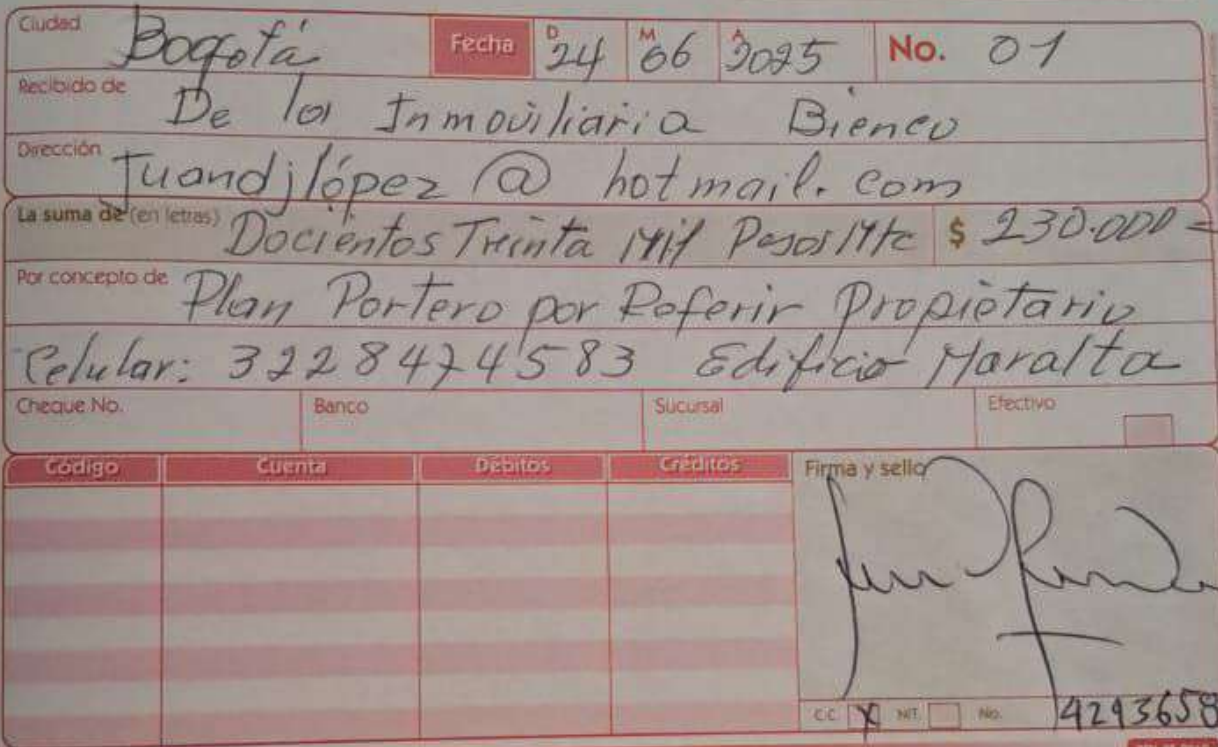 Ciudad Bogotá Fecha D 24 M 06 A 2025 No. 01
Recibido de De la Inmoviliaria Bienco
Dirección Juandjlópez @ hotmail.com
La suma de (en letras) Docientos Treinta Mil Pesos Mtc $ 230.000=
Por concepto de Plan Portero por Referir Propietario
Celular: 3228474583 Edificio Maralta
Cheque No. Banco Sucursal Efectivo
Código Cuenta Débitos Créditos Firma y sello
C.C. X NIT. No. 4293658